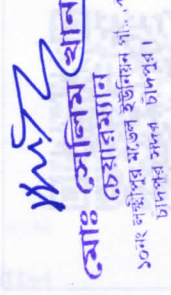 মোঃ সেলিম খান
চেয়ারম্যান
১০নং লক্ষ্মীপুর মডেল ইউনিয়ন
চাঁদপুর সদর চাঁদপুর।